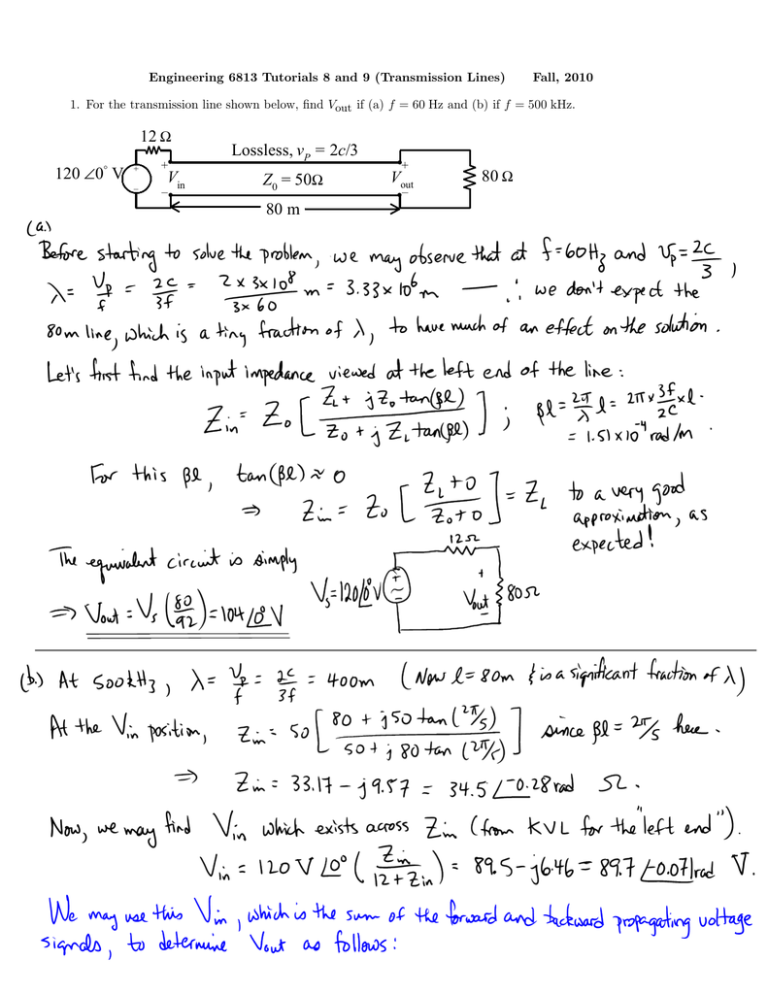 Engineering 6813 Tutorials 8 and 9 (Transmission Lines) Fall, 2010
1. For the transmission line shown below, find Vout if (a) f = 60 Hz and (b) if f = 500 kHz.
12 Ω
Lossless, vp = 2c/3
120 ∠0° V
+
+
+
Vin
Z0 = 50Ω
Vout
80 Ω
−
−
−
80 m
(a.)
Before starting to solve the problem, we may observe that at f=60Hz and Vp = 2c/3,
λ = Vp/f = 2c/3f = (2 x 3x10^8)/(3x60) m = 3.33x10^6 m — ∴ we don't expect the
80m line, which is a tiny fraction of λ, to have much of an effect on the solution.
Let's first find the input impedance viewed at the left end of the line:
Zin = Z0 [ (ZL + jZ0 tan(βl)) / (Z0 + jZL tan(βl)) ] ; βl = 2π/λ l = 2π x 3f/2c x l.
= 1.51x10^-4 rad/m.
For this βl, tan(βl) ≈ 0
⇒ Zin = Z0 [ (ZL+0)/(Z0+0) ] = ZL to a very good
approximation, as
expected!
The equivalent circuit is simply
12Ω
Vs=120∠0° V
+
−
+
Vout
−
80Ω
⇒ Vout = Vs (80/92) = 104∠0° V
(b.) At 500kHz, λ = Vp/f = 2c/3f = 400m (Now l = 80m & is a significant fraction of λ)
At the Vin position, Zin = 50 [ (80 + j50 tan(2π/5)) / (50 + j80 tan(2π/5)) ] since βl = 2π/5 here.
⇒ Zin = 33.17 - j9.57 = 34.5 ∠-0.28 rad Ω.
Now, we may find Vin which exists across Zin (from KVL for the "left end").
Vin = 120 V ∠0° ( Zin/(12+Zin) ) = 89.5 - j6.46 = 89.7 ∠-0.071rad V.
We may use this Vin, which is the sum of the forward and backward propagating voltage
signals, to determine Vout as follows: